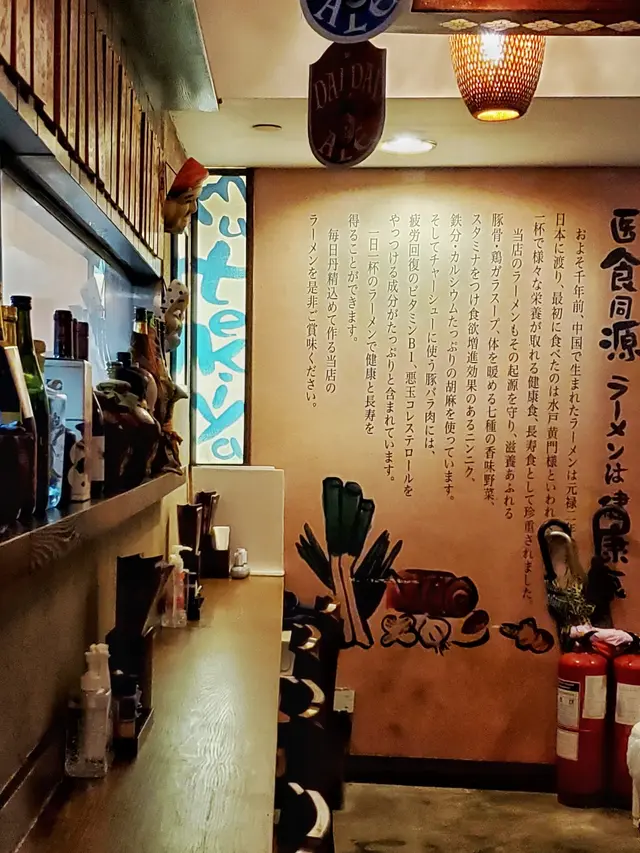 医食同源 ラーメンは健康食
およそ千年前、中国で生まれたラーメンは元禄
日本に渡り、最初に食べたのは水戸黄門様といわれ
一杯で様々な栄養が取れる健康食、長寿食として珍重されました。
当店のラーメンもその起源を守り、滋養あふれる
豚骨・鶏ガラスープ、体を暖める七種の香味野菜、
スタミナをつけ食欲増進効果のあるニンニク、
鉄分・カルシウムたっぷりの胡麻を使っています。
そしてチャーシューに使う豚バラ肉には、
疲労回復のビタミンB1、悪玉コレステロールを
やっつける成分がたっぷりと含まれています。
一日一杯のラーメンで健康と長寿を
得ることができます。
毎日丹精込めて作る当店の
ラーメンを是非ご賞味ください。
mutekiya
ALC
DAI DAI
ALC